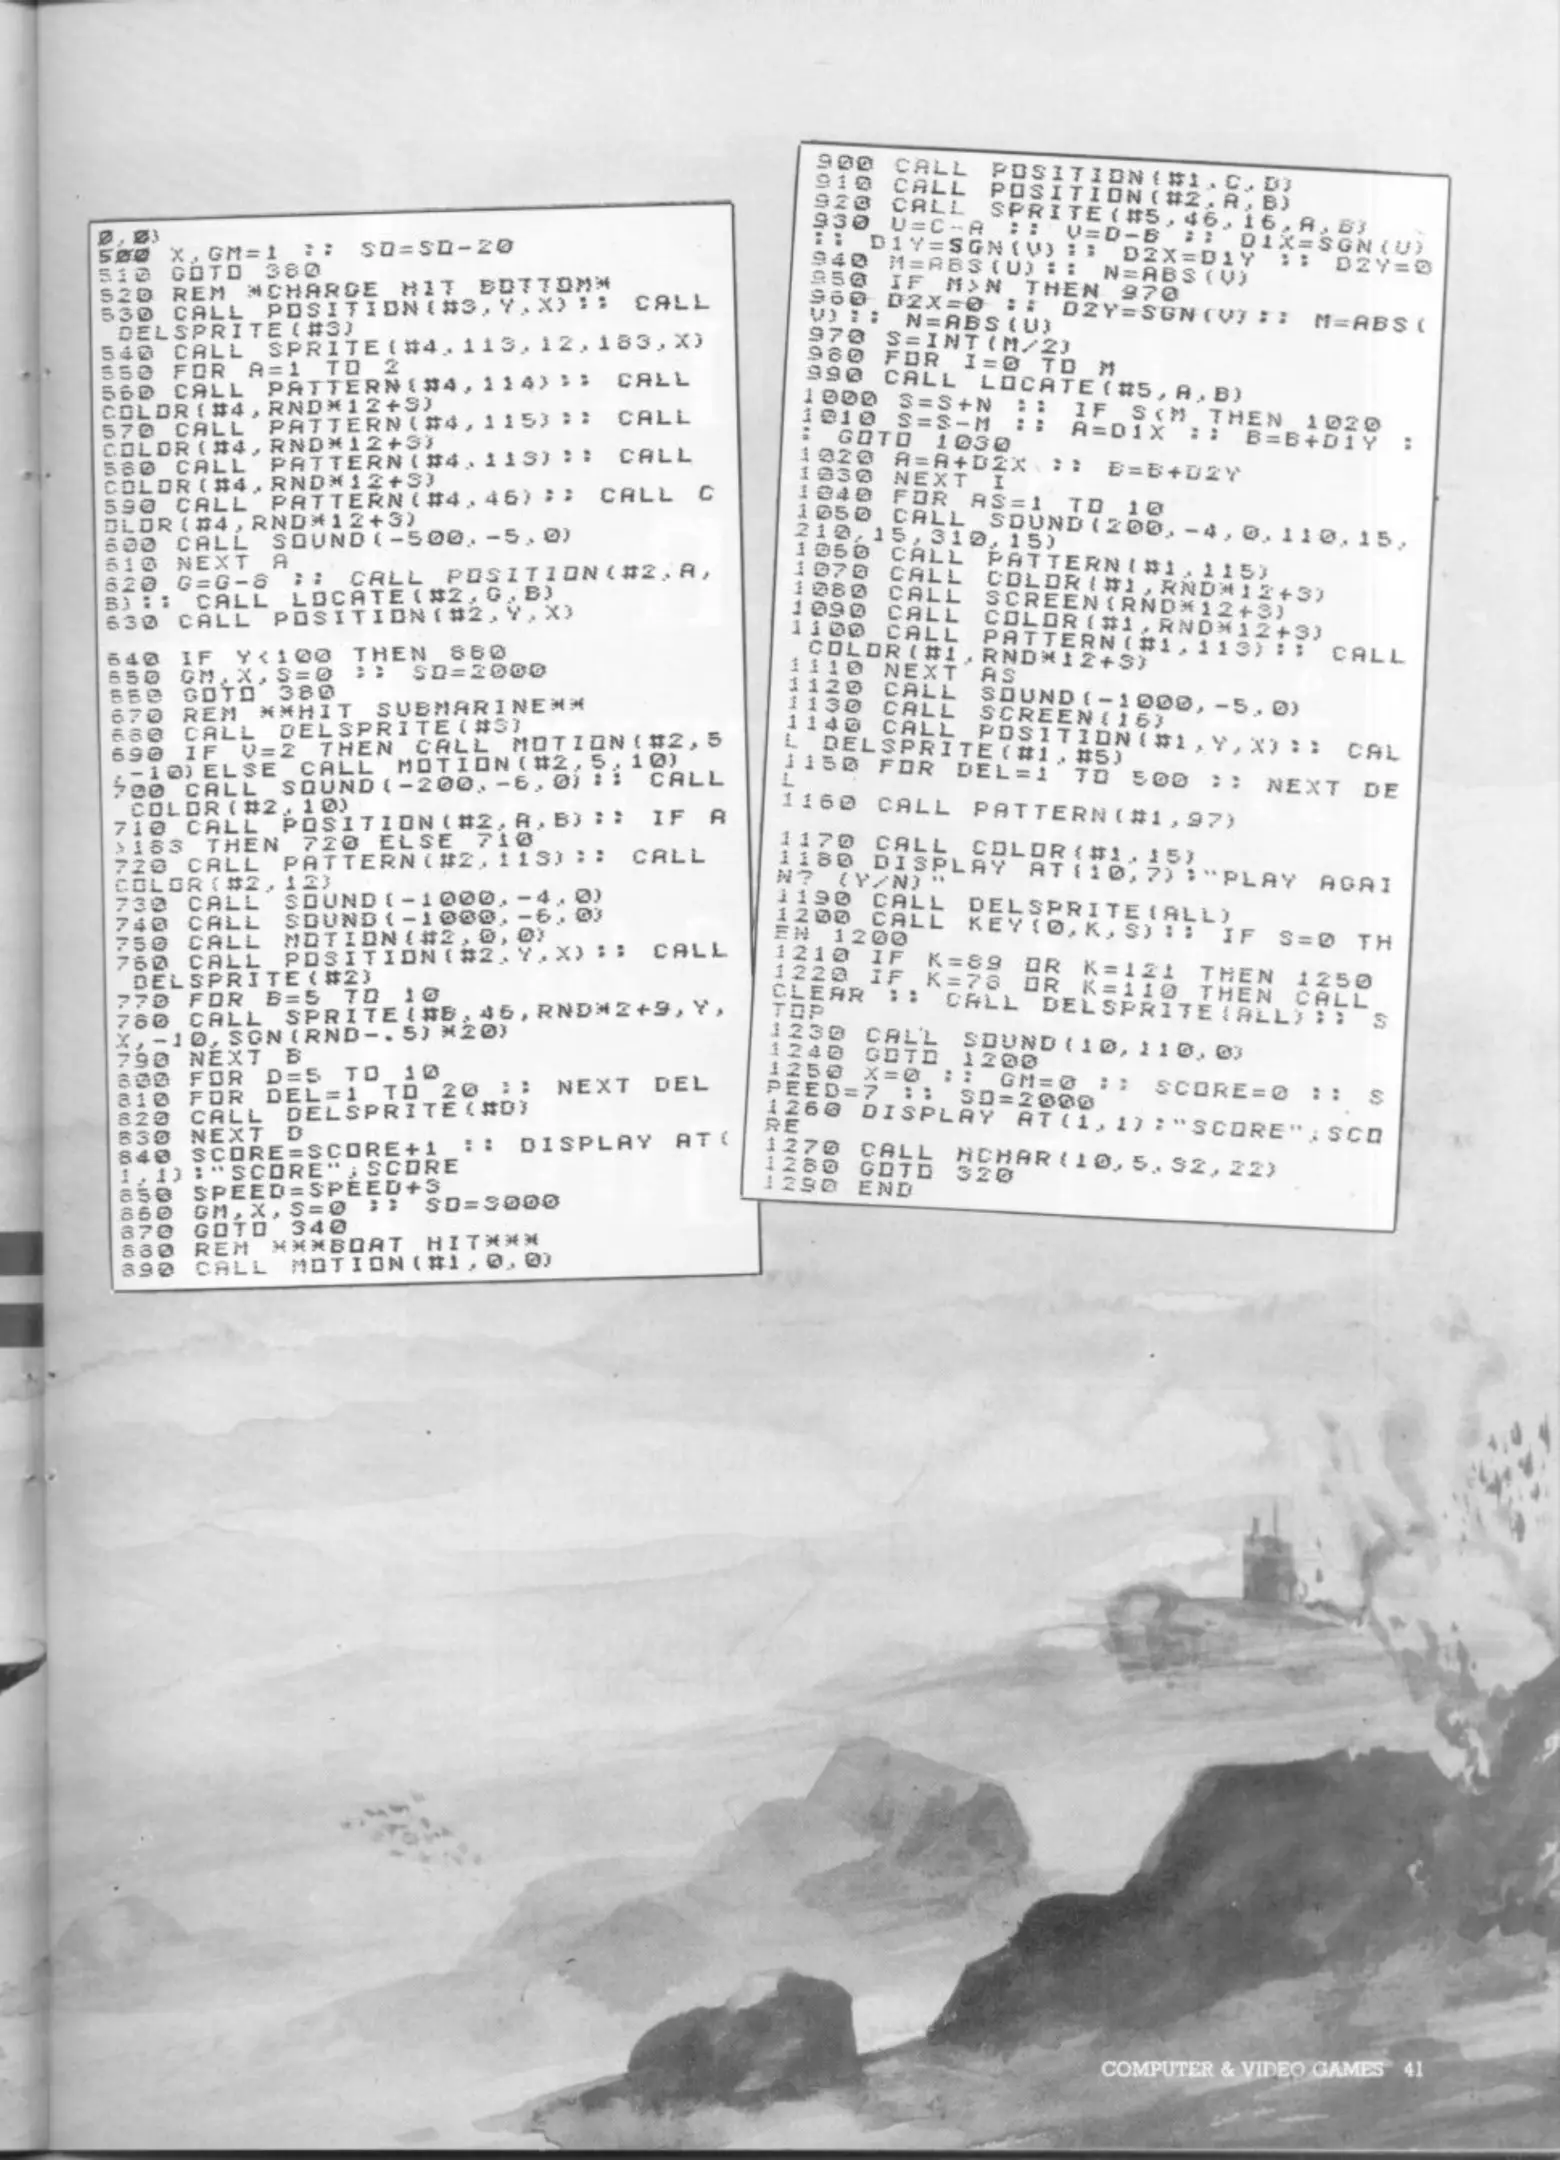 0,0)
500 X,GM=1 :: SD=SD-20
510 GOTO 380
520 REM *CHARGE HIT BOTTOM*
530 CALL POSITION(#3,Y,X):: CALL
DELSPRITE(#3)
540 CALL SPRITE(#4,113,12,183,X)
550 FOR A=1 TO 2
560 CALL PATTERN(#4,114):: CALL
COLOR(#4,RND*12+3)
570 CALL PATTERN(#4,115):: CALL
COLOR(#4,RND*12+3)
580 CALL PATTERN(#4,113):: CALL
COLOR(#4,RND*12+3)
590 CALL PATTERN(#4,46):: CALL C
OLOR(#4,RND*12+3)
600 CALL SOUND(-500,-5,0)
610 NEXT A
620 G=G-8 :: CALL POSITION(#2,A,
B):: CALL LOCATE(#2,G,B)
630 CALL POSITION(#2,Y,X)
640 IF Y<100 THEN 880
650 GM,X,S=0 :: SD=2000
660 GOTO 380
670 REM **HIT SUBMARINE**
680 CALL DELSPRITE(#3)
690 IF V=2 THEN CALL MOTION(#2,5
,-10)ELSE CALL MOTION(#2,5,10)
700 CALL SOUND(-200,-6,0):: CALL
COLOR(#2,10)
710 CALL POSITION(#2,A,B):: IF A
>183 THEN 720 ELSE 710
720 CALL PATTERN(#2,113):: CALL
COLOR(#2,12)
730 CALL SOUND(-1000,-4,0)
740 CALL SOUND(-1000,-6,0)
750 CALL MOTION(#2,0,0)
760 CALL POSITION(#2,Y,X):: CALL
DELSPRITE(#2)
770 FOR B=5 TO 10
780 CALL SPRITE(#B,46,RND*2+9,Y,
X,-10,SGN(RND-.5)*20)
790 NEXT B
800 FOR D=5 TO 10
810 FOR DEL=1 TO 20 :: NEXT DEL
820 CALL DELSPRITE(#D)
830 NEXT D
840 SCORE=SCORE+1 :: DISPLAY AT(
1,1):"SCORE";SCORE
850 SPEED=SPEED+3
860 GM,X,S=0 :: SD=3000
870 GOTO 340
880 REM ***BOAT HIT***
890 CALL MOTION(#1,0,0)
900 CALL POSITION(#1,C,D)
910 CALL POSITION(#2,A,B)
920 CALL SPRITE(#5,46,16,A,B)
930 U=C-A :: V=D-B :: D1X=SGN(U)
:: D1Y=SGN(V):: D2X=D1Y :: D2Y=0
940 M=ABS(U):: N=ABS(V)
950 IF M>N THEN 970
960 D2X=0 :: D2Y=SGN(V):: M=ABS(
V):: N=ABS(U)
970 S=INT(M/2)
980 FOR I=0 TO M
990 CALL LOCATE(#5,A,B)
1000 S=S+N :: IF S<M THEN 1020
1010 S=S-M :: A=D1X :: B=B+D1Y :
: GOTO 1030
1020 A=A+D2X :: B=B+D2Y
1030 NEXT I
1040 FOR AS=1 TO 10
1050 CALL SOUND(200,-4,0,110,15,
210,15,310,15)
1060 CALL PATTERN(#1,115)
1070 CALL COLOR(#1,RND*12+3)
1080 CALL SCREEN(RND*12+3)
1090 CALL COLOR(#1,RND*12+3)
1100 CALL PATTERN(#1,113):: CALL
COLOR(#1,RND*12+3)
1110 NEXT AS
1120 CALL SOUND(-1000,-5,0)
1130 CALL SCREEN(16)
1140 CALL POSITION(#1,Y,X):: CAL
L DELSPRITE(#1,#5)
1150 FOR DEL=1 TO 500 :: NEXT DE
L
1160 CALL PATTERN(#1,97)
1170 CALL COLOR(#1,15)
1180 DISPLAY AT(10,7):"PLAY AGAI
N? (Y/N)"
1190 CALL DELSPRITE(ALL)
1200 CALL KEY(0,K,S):: IF S=0 TH
EN 1200
1210 IF K=89 OR K=121 THEN 1250
1220 IF K=78 OR K=110 THEN CALL
CLEAR :: CALL DELSPRITE(ALL):: S
TOP
1230 CALL SOUND(10,110,0)
1240 GOTO 1200
1250 X=0 :: GM=0 :: SCORE=0 :: S
PEED=7 :: SD=2000
1260 DISPLAY AT(1,1):"SCORE";SCO
RE
1270 CALL HCHAR(10,5,32,22)
1280 GOTO 320
1290 END
COMPUTER & VIDEO GAMES 41